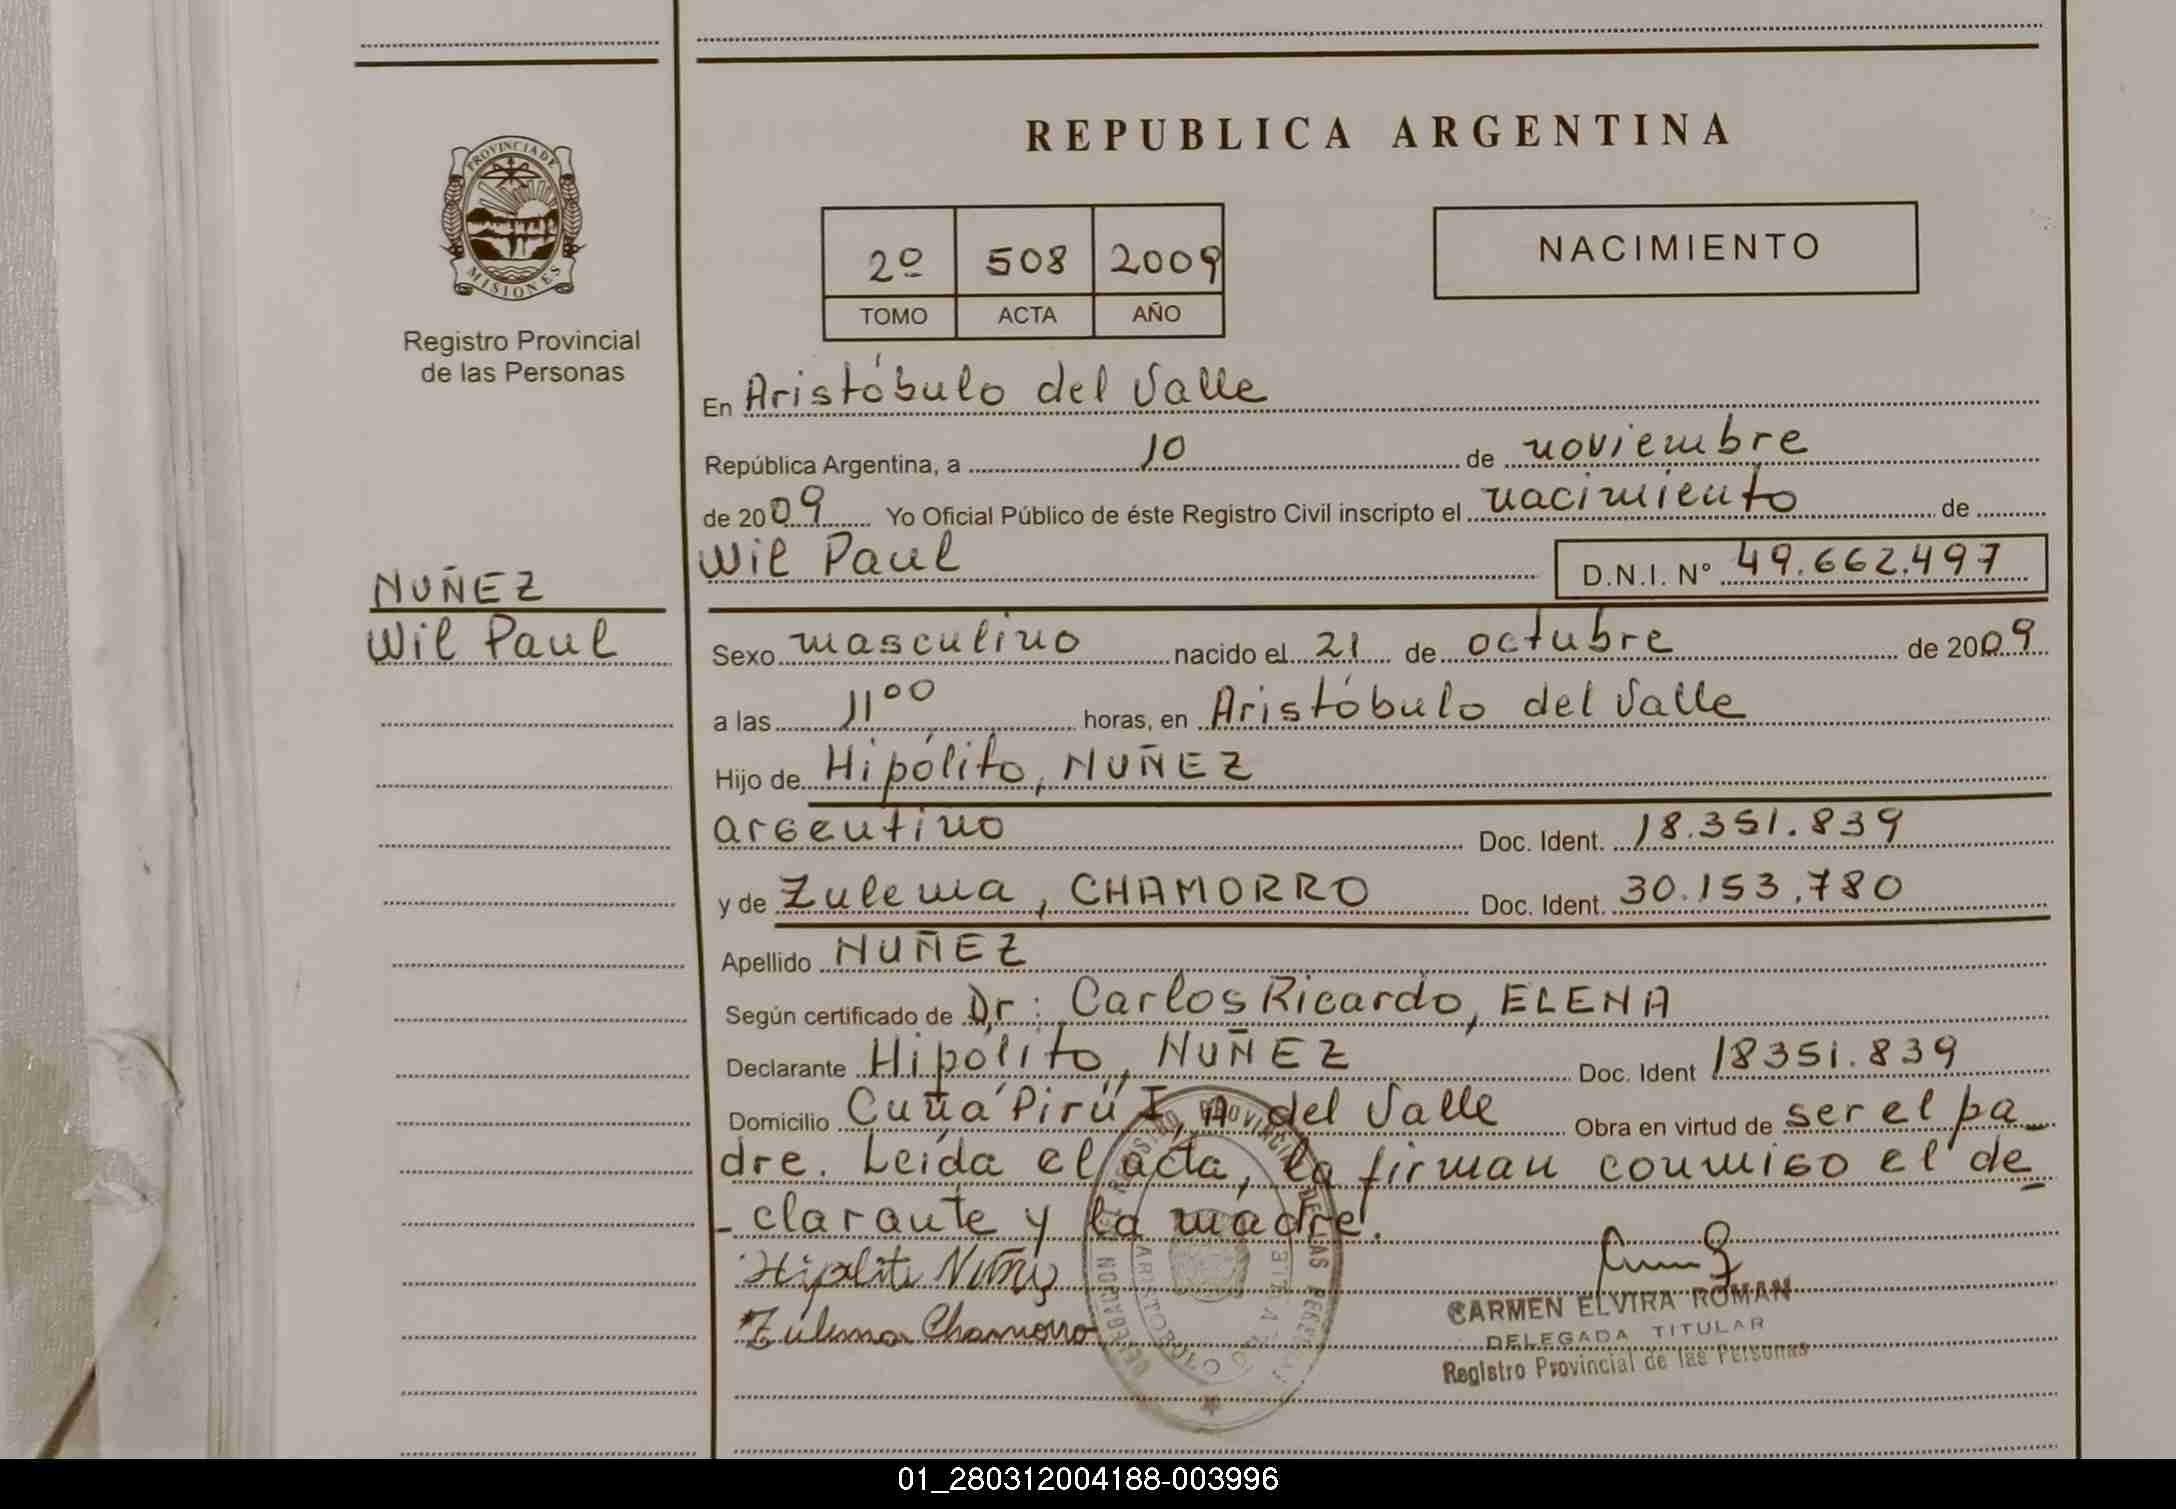 REPUBLICA ARGENTINA
PROVINCIA DE
MISIONES
Registro Provincial
de las Personas
2º 508 2009
TOMO ACTA AÑO
NACIMIENTO
En Aristóbulo del Valle
República Argentina, a 10 de noviembre
de 2009 Yo Oficial Público de éste Registro Civil inscripto el nacimiento de
Wil Paul D.N.I. Nº 49.662.497
NUÑEZ
Wil Paul
Sexo masculino nacido el 21 de octubre de 2009
a las 11⁰⁰ horas, en Aristóbulo del Valle
Hijo de Hipólito, NUÑEZ
argentino Doc. Ident. 18.351.839
y de Zulema, CHAMORRO Doc. Ident. 30.153.780
Apellido NUÑEZ
Según certificado de Dr: Carlos Ricardo, ELENA
Declarante Hipólito, NUÑEZ Doc. Ident 18351.839
Domicilio Cuña Pirú I, A. del Valle Obra en virtud de ser el pa_
dre. Leída el acta, la firman conmigo el de_
_clarante y la madre.
Hipolito Nuñez
Zulema Chamorro
CARMEN ELVIRA ROMAN
DELEGADA TITULAR
Registro Provincial de las Personas
01_280312004188-003996